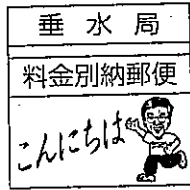 垂水局
料金別納郵便
こんにちは